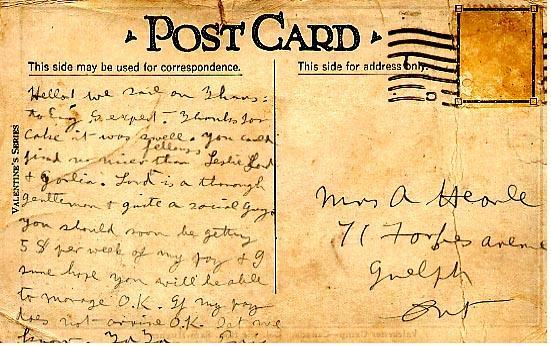 POST CARD
This side may be used for correspondence.
This side for address only.
VALENTINE'S SERIES
Hello! we sail on Thurs:
to Eng I expect. Thanks for
cake it was swell. You could
find no nicer fellows than Leslie Lord
& Gordie. Lord is a thorough
gentleman & quite a social guy
you should soon be getting
5 $ per week of my pay & I
sure hope you will be able
to manage O.K. If my pay
does not arrive O.K. Let me
know.
Mrs A Hearle
71 Forbes avenue
Guelph
Ont